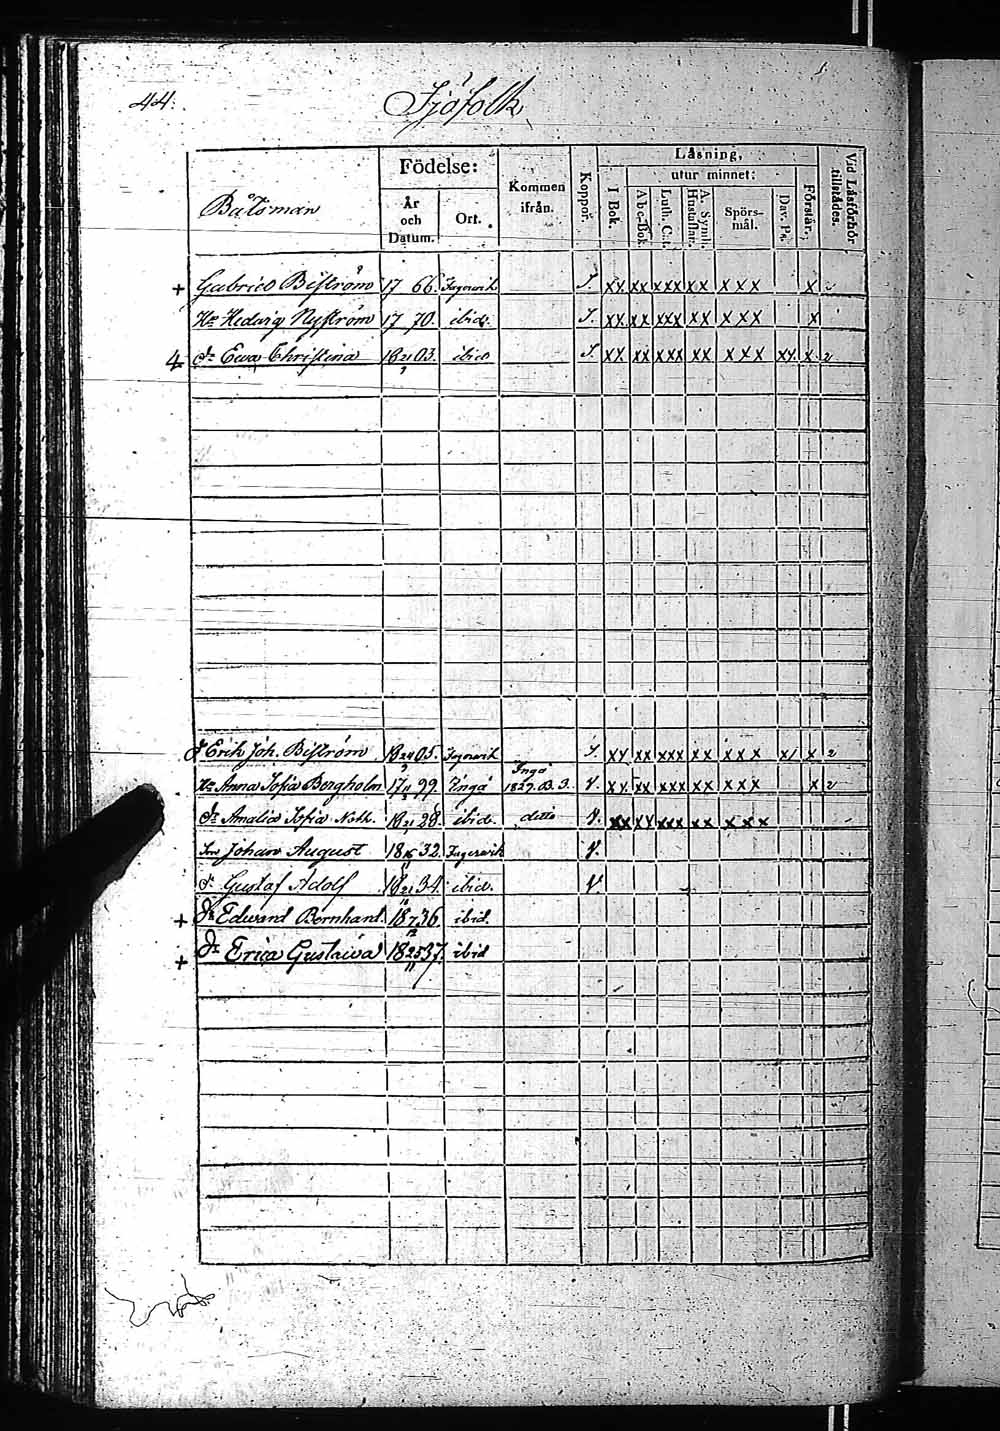 44.
Sjöfolk
Båtsman
Födelse:
År och Datum.
Ort.
Kommen ifrån.
Koppor.
Läsning,
I Bok.
utur minnet:
Abc-Bok.
Luth. Cat.
A. Symb. Hustaflar.
Spörs-mål.
Dav. Ps.
Förstår.
Vid Läsförhör tillstädes.
+ Gabriel Biström 17 66. Fagervik S. xx xx xxx xx xxx x
Hu Hedwig Nyström 17 70. ibid. S. xx xx xxx xx xxx x
Dr Ewa Christina 18 21 03. ibid S. xx xx xxx xx xxx xx x 2
Erik Joh. Biström 18 24 05. Fagervik S. xx xx xxx xx xxx x/ x 2
Hu Anna Sofia Bergholm 17 99. Ingå Ingå 1829. 03. 3. V. xx xx xxx xx xxx x 2
Dr Amalia Sofia Nath. 18 21 28. ibid. ditto V. xx xx xxx xx xxx
Son Johan August 18 16 32. Fagervik V.
Gustaf Adolf 18 21 34. ibid. V
+ Edward Bernhard. 18 7 36. ibid.
12
+ Dr Erica Gustava 18 25 37. ibid
11